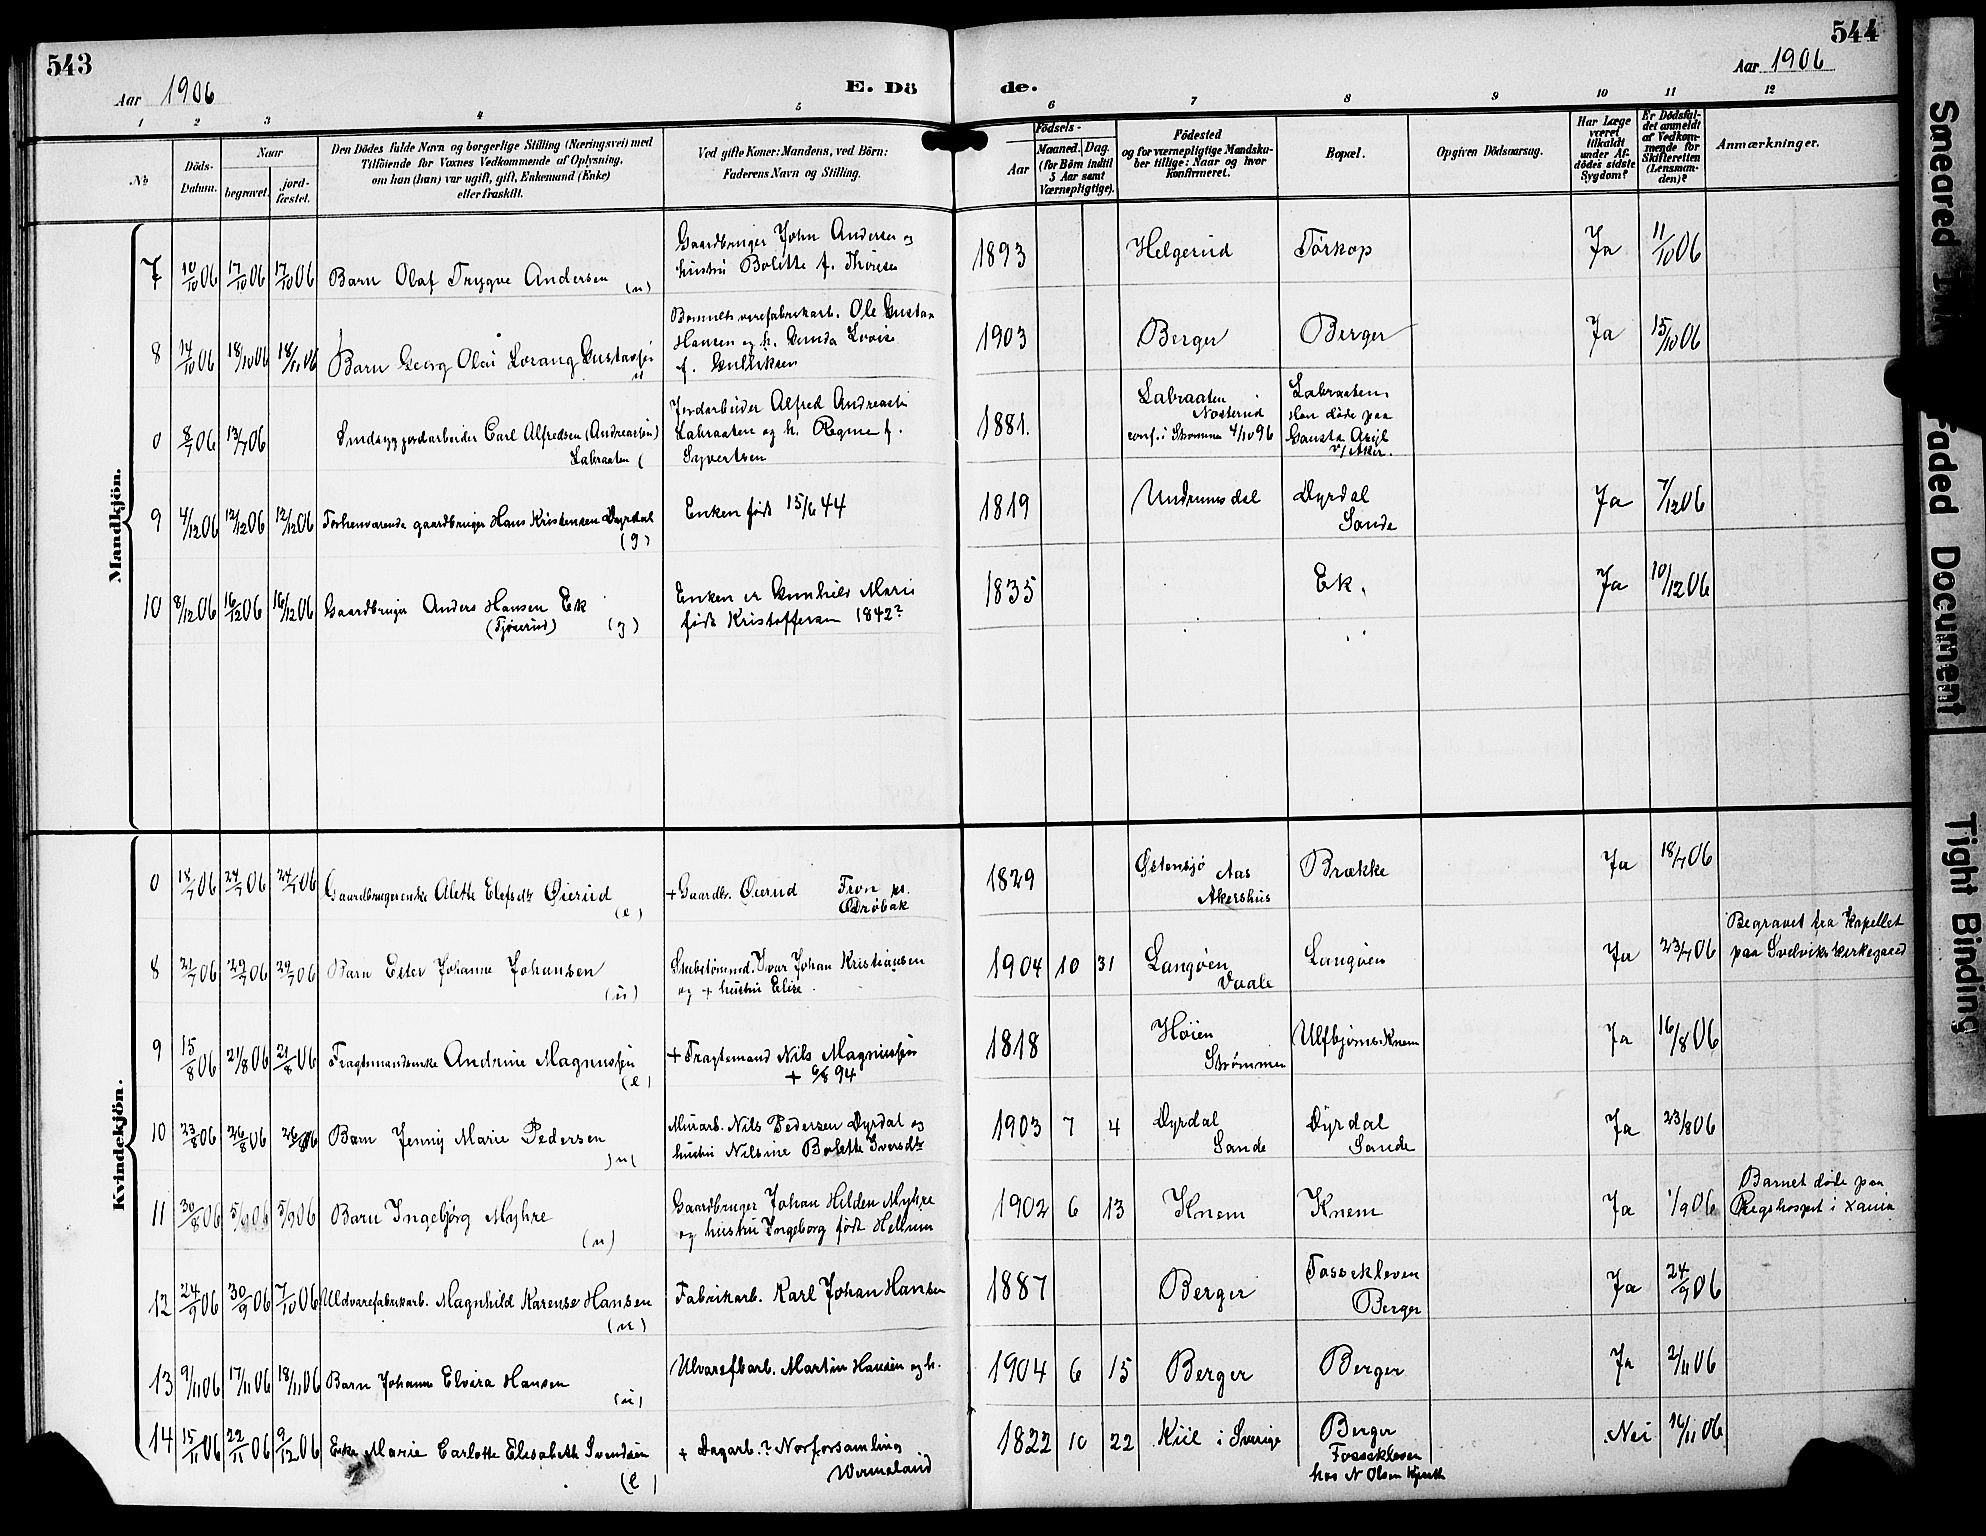 543
544
Aar 1906
E. Dö de.
Aar 1906
1 2 3 4 5 6 7 8 9 10 11 12
No
Döds-Datum.
Naar
begravet.
jord-fæstet.
Den Dödes fulde Navn og borgerlige Stilling (Næringsvei) med
Tilföiende for Voxnes Vedkommende af Oplysning,
om han (hun) var ugift, gift, Enkemand (Enke)
eller fraskilt.
Ved gifte Koner: Mandens, ved Börn:
Faderens Navn og Stilling.
Födsels-
Aar
Maaned. Dag.
(for Börn indtil
5 Aar samt
Værnepligtige).
Födested
og for værnepligtige Mandsku-
ber tillige: Naar og hvor
Konfirmeret.
Bopæl.
Opgiven Dödsaarsag.
Har Læge
været
tilkaldt
under Af-
dödes sidste
Sygdom?
Er Dödsfal-
det anmeldt
af Vedkom-
mende for
Skifteretten
(Lensman-
den)?
Anmærkninger.
Mandkjön.
7 10/10 06 17/10 06 17/10 06 Barn Olaf Trygve Andersen (u) Gaardbruger John Andersen og
hustru Bolette f. Thoresen 1893 Helgerud Torkop Ja 11/10 06
8 14/10 06 18/10 06 18/11 06 Barn Georg Olai Lorang Gustavsen u Bomuldsvarefabrikarb. Ole Gustav
Hansen og h. Gunda Lovise
f. Gulliksen 1903 Berger Berger Ja 15/10 06
0 8/7 06 13/7 06 Sindssyg jordarbeider Carl Alfredsen (Andreassen)
Labraaten ( Jordarbeider Alfred Andreassen
Labraaten og h. Regine f.
Syvertsen 1881. Labraaten
Nosterud
conf. i Strømmen 4/10 96 Labraaten
Han døde paa
Gausta Asyl
v/ Aker.
9 4/12 06 12/12 06 12/12 06 Forhenværende gaardbruger Hans Kristensen Dyrdal
(g) Enken født 15/6 44 1819 Undrumsdal Dyrdal
Sande Ja 7/12 06
10 8/12 06 16/12 06 16/12 06 Gaardbruger Anders Hansen Ek
(Tjøserud) (g) Enken er Gunhild Marie
født Kristoffersen 1842? 1835 Ek. Ja 10/12 06
Kvindekjön.
0 18/7 06 24/7 06 24/7 06 Gaardbrugerenke Alette Elefsdtr Øierud
(e) + Gaardbr. Øierud Fron pr.
Drøbak 1829 Østensjø Aas
Akershus Brække Ja 18/7 06
8 21/7 06 29/7 06 29/7 06 Barn Ester Johanne Johansen
(u) Skibstømmd. Ivar Johan Kristiansen
og + hustru Elise. 1904 10 31 Langøen
Vaale Langøen Ja 23/7 06 Begravet fra Kapellet
paa Svelviks kirkegaard
9 15/8 06 21/8 06 21/8 06 Fragtemandsenke Andrine Magnussen
(e) + Fragtemand Nils Magnussen
+ 6/8 94 1818 Høien
Strømmen Ulfbjørns. Knem Ja 16/8 06
10 23/8 06 26/8 06 26/8 06 Barn Jenny Marie Pedersen
)u( Murarb. Nils Pedersen Dyrdal og
hustru Nilsine Bolette Iversdtr 1903 7 4 Dyrdal
Sande Dyrdal
Sande Ja 23/8 06
11 30/8 06 5/9 06 5/9 06 Barn Ingebjørg Myhre
(u) Gaardbruger Johan Hilden Myhre
og hustru Ingeborg født Hellum 1902 6 13 Knem Knem Ja 1/9 06 Barnet døde paa
Rigshospit i Xania
12 24/9 06 30/9 06 7/10 06 Uldvarefabrikarb. Magnhild Karense Hansen
(u) Fabrikarb. Karl Johan Hansen 1887 Berger Fossekleven
Berger Ja 24/9 06
13 9/11 06 17/11 06 18/11 06 Barn Johanne Elvira Hansen
(u) Ulvarefbarb. Martin Hansen og h. 1904 6 15 Berger Berger Ja 2/11 06
14 15/11 06 22/11 06 9/12 06 Enke Marie Carlotte Elisabeth Svendsen
(e) + Dagarb. ? Norforsamling
Wermeland 1822 10 22 Kiil i Sverige Berger
Fossekleven
hos N Olsen Nei 16/11 06
Smeared
Faded Document
Tight Binding